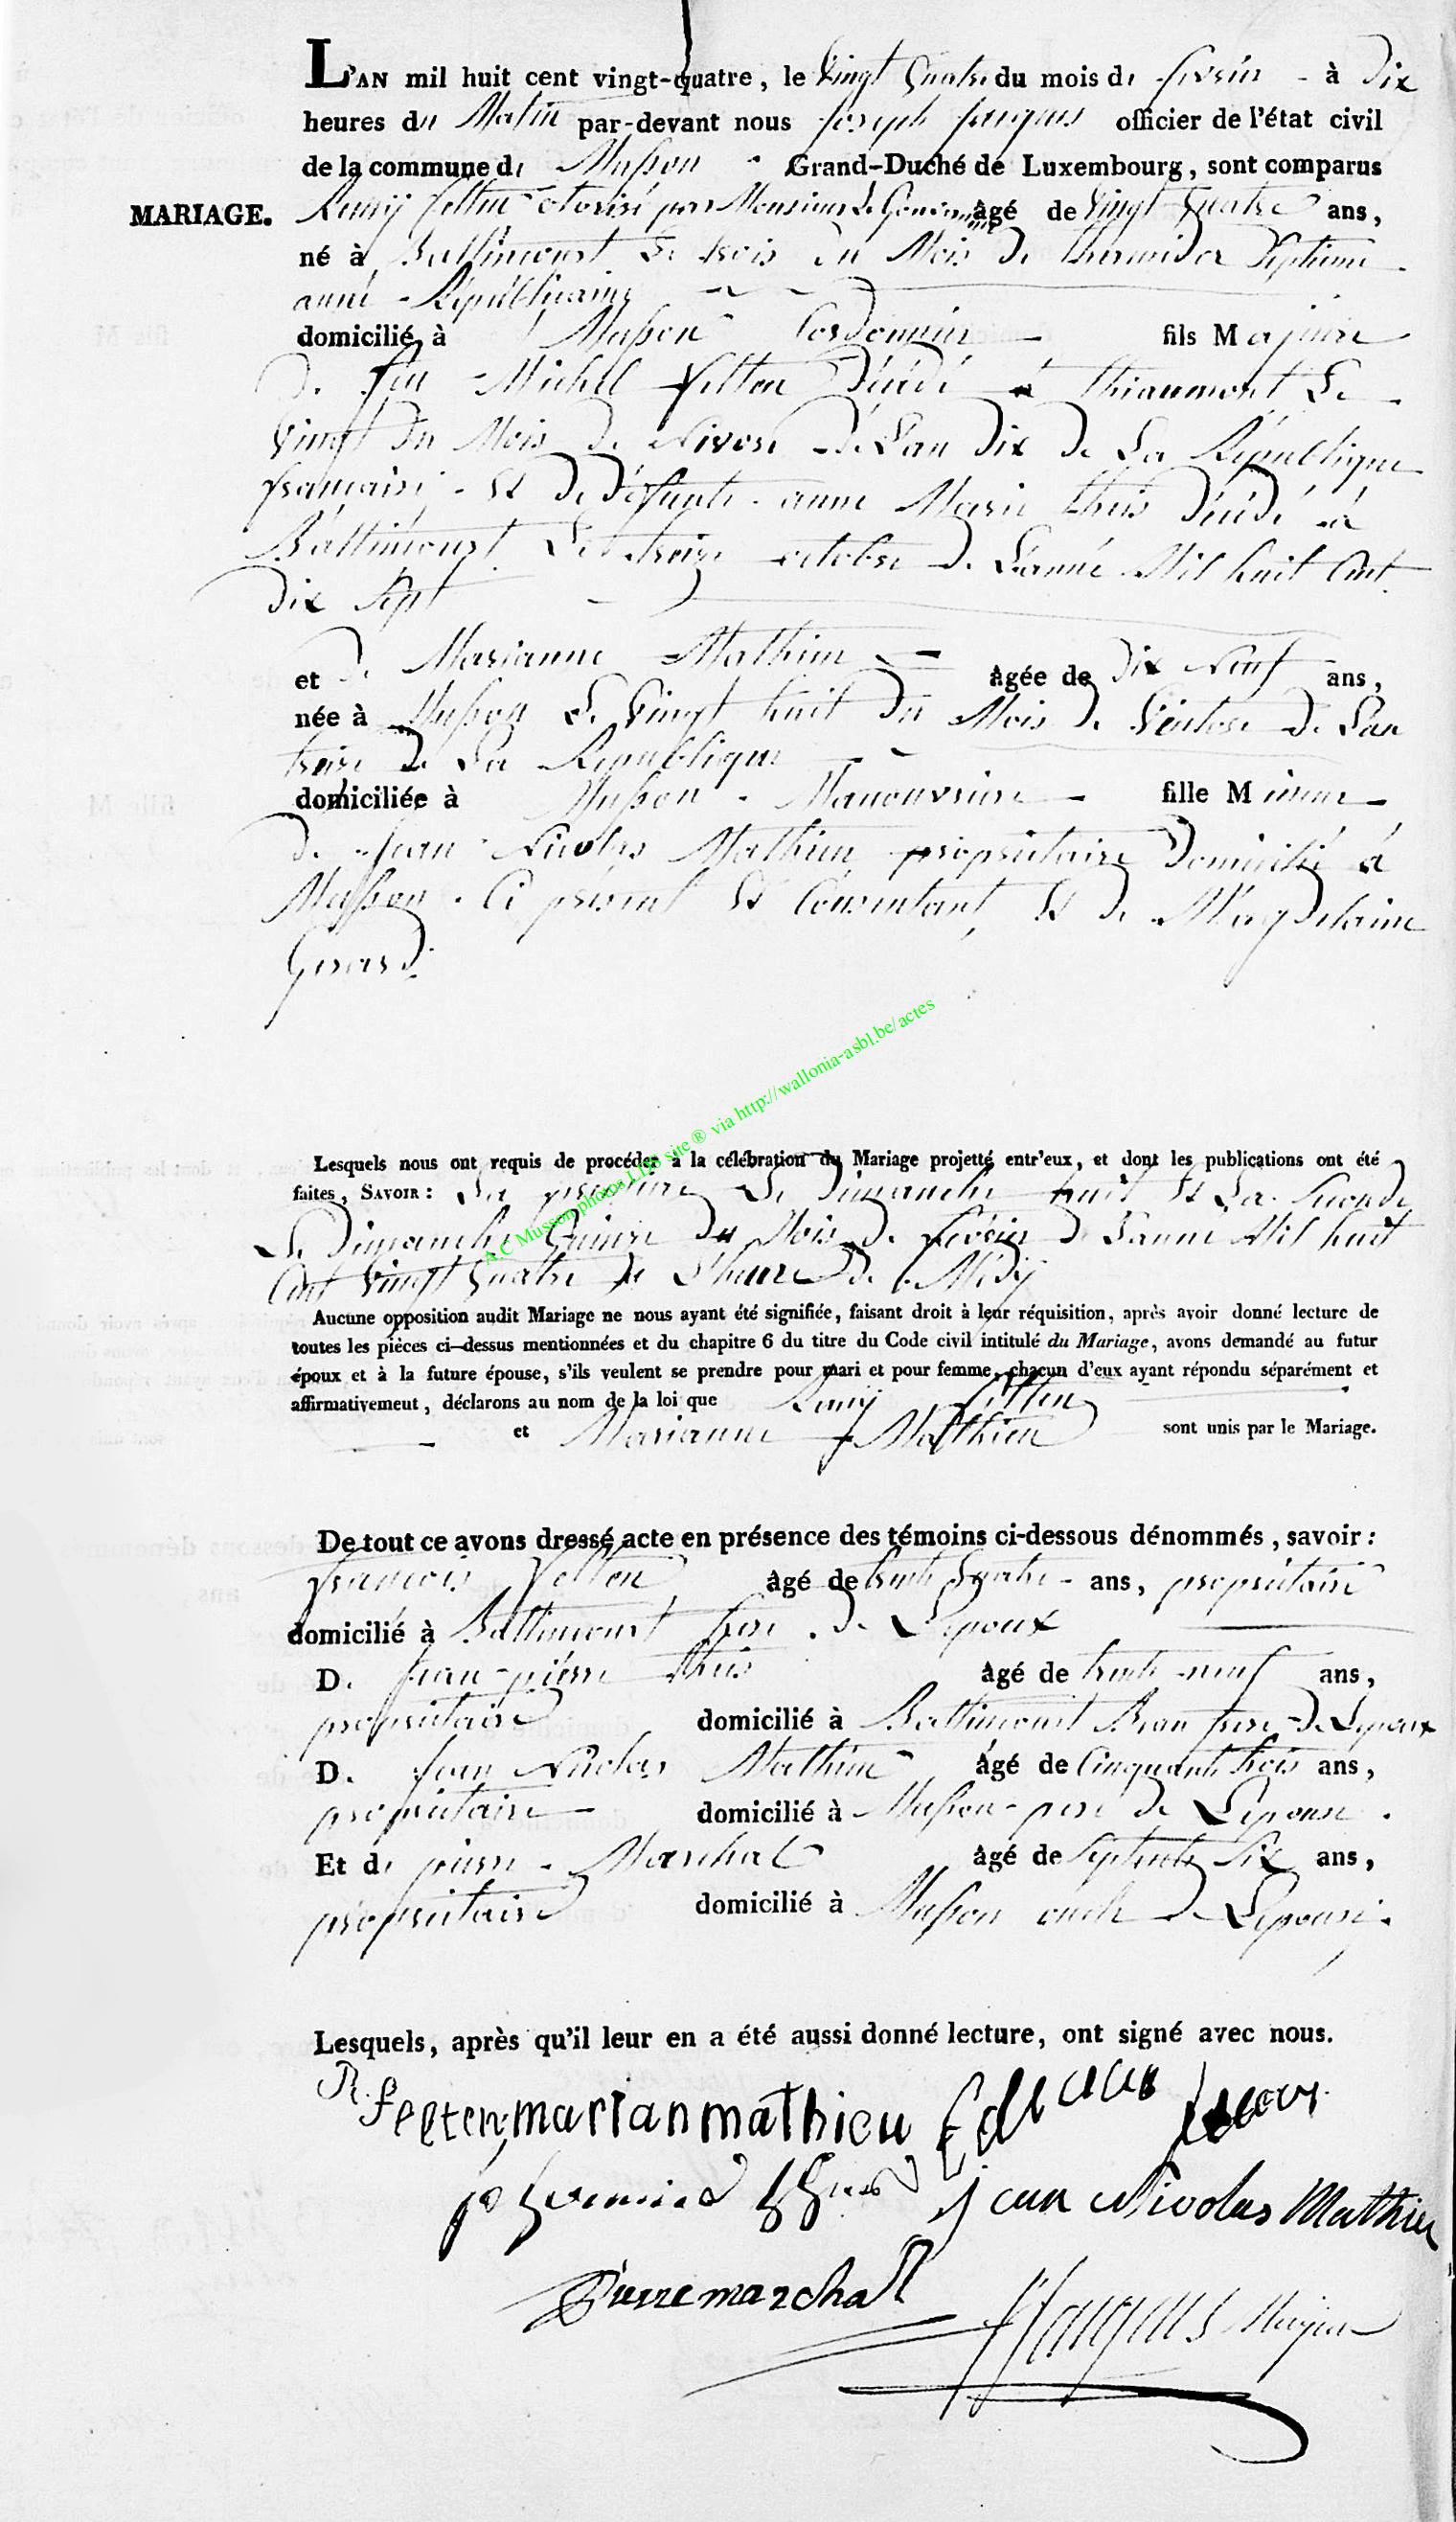 L'AN mil huit cent vingt-quatre, le Vingt Quatre du mois de fevrier à Dix
heures du Matin par-devant nous Joseph Jacques officier de l'état civil
de la commune de Musson Grand-Duché de Luxembourg, sont comparus
MARIAGE.
Remy felten otorisé par Monsieur Le Gouverneur âgé de Vingt Quatre ans,
né à Battincourt Le trois du Mois de thermidor Septieme
anné Républicaine
domicilié à Musson Cordonnier fils Majeure
de feu Michel felten Décédé à thiaumont Le
Vingt du Mois de Nivose de L'an Dix de La République
française Et de défunte anne Marie this Décédé à
Battincourt Le treize octobre de L'anné Mil huit Cent
Dix Sept
et de Marianne Mathieu âgée de Dix Neuf ans,
née à Musson Le Vingt huit du Mois de Ventose de L'an
treize de La Republique
domiciliée à Musson Manouvriere fille Mineure
de Jean Nicolas Mathieu propriétaire Domicilié à
Musson Ci présent Et Consentant Et de Magdelaine
Gerard.
A.C Musson photos LDB site ® via http://wallonia-asbl.be/actes
Lesquels nous ont requis de procéder à la célébration du Mariage projetté entr'eux, et dont les publications ont été
faites, SAVOIR : La premiere Le Dimanche huit Et La Seconde
Le Dimanche Quinze du Mois de février de L'anné Mil huit
Cent Vingt Quatre à L'heure de Midy
Aucune opposition audit Mariage ne nous ayant été signifiée, faisant droit à leur réquisition, après avoir donné lecture de
toutes les pièces ci-dessus mentionnées et du chapitre 6 du titre du Code civil intitulé du Mariage, avons demandé au futur
époux et à la future épouse, s'ils veulent se prendre pour mari et pour femme, chacun d'eux ayant répondu séparément et
affirmativement, déclarons au nom de la loi que Remy felten
et Marianne Matthieu sont unis par le Mariage.
De tout ce avons dressé acte en présence des témoins ci-dessous dénommés, savoir :
francois felten âgé de trente Quatre ans, propriétaire
domicilié à Battincourt frere de L'epoux
D. Jean-pierre this âgé de trente neuf ans,
propriétaire domicilié à Battincourt Beau frere de L'epoux
D. Jean Nicolas Mathieu âgé de Cinquante trois ans,
propriétaire domicilié à Musson pere de L'epouse
Et de pierre Marchal âgé de Septente Six ans,
propriétaire domicilié à Musson oncle de L'epouse.
Lesquels, après qu'il leur en a été aussi donné lecture, ont signé avec nous.
R. felten, marian mathieu
jean Nicolas Mathieu
Pierre marchal
J Jacques Mayeur